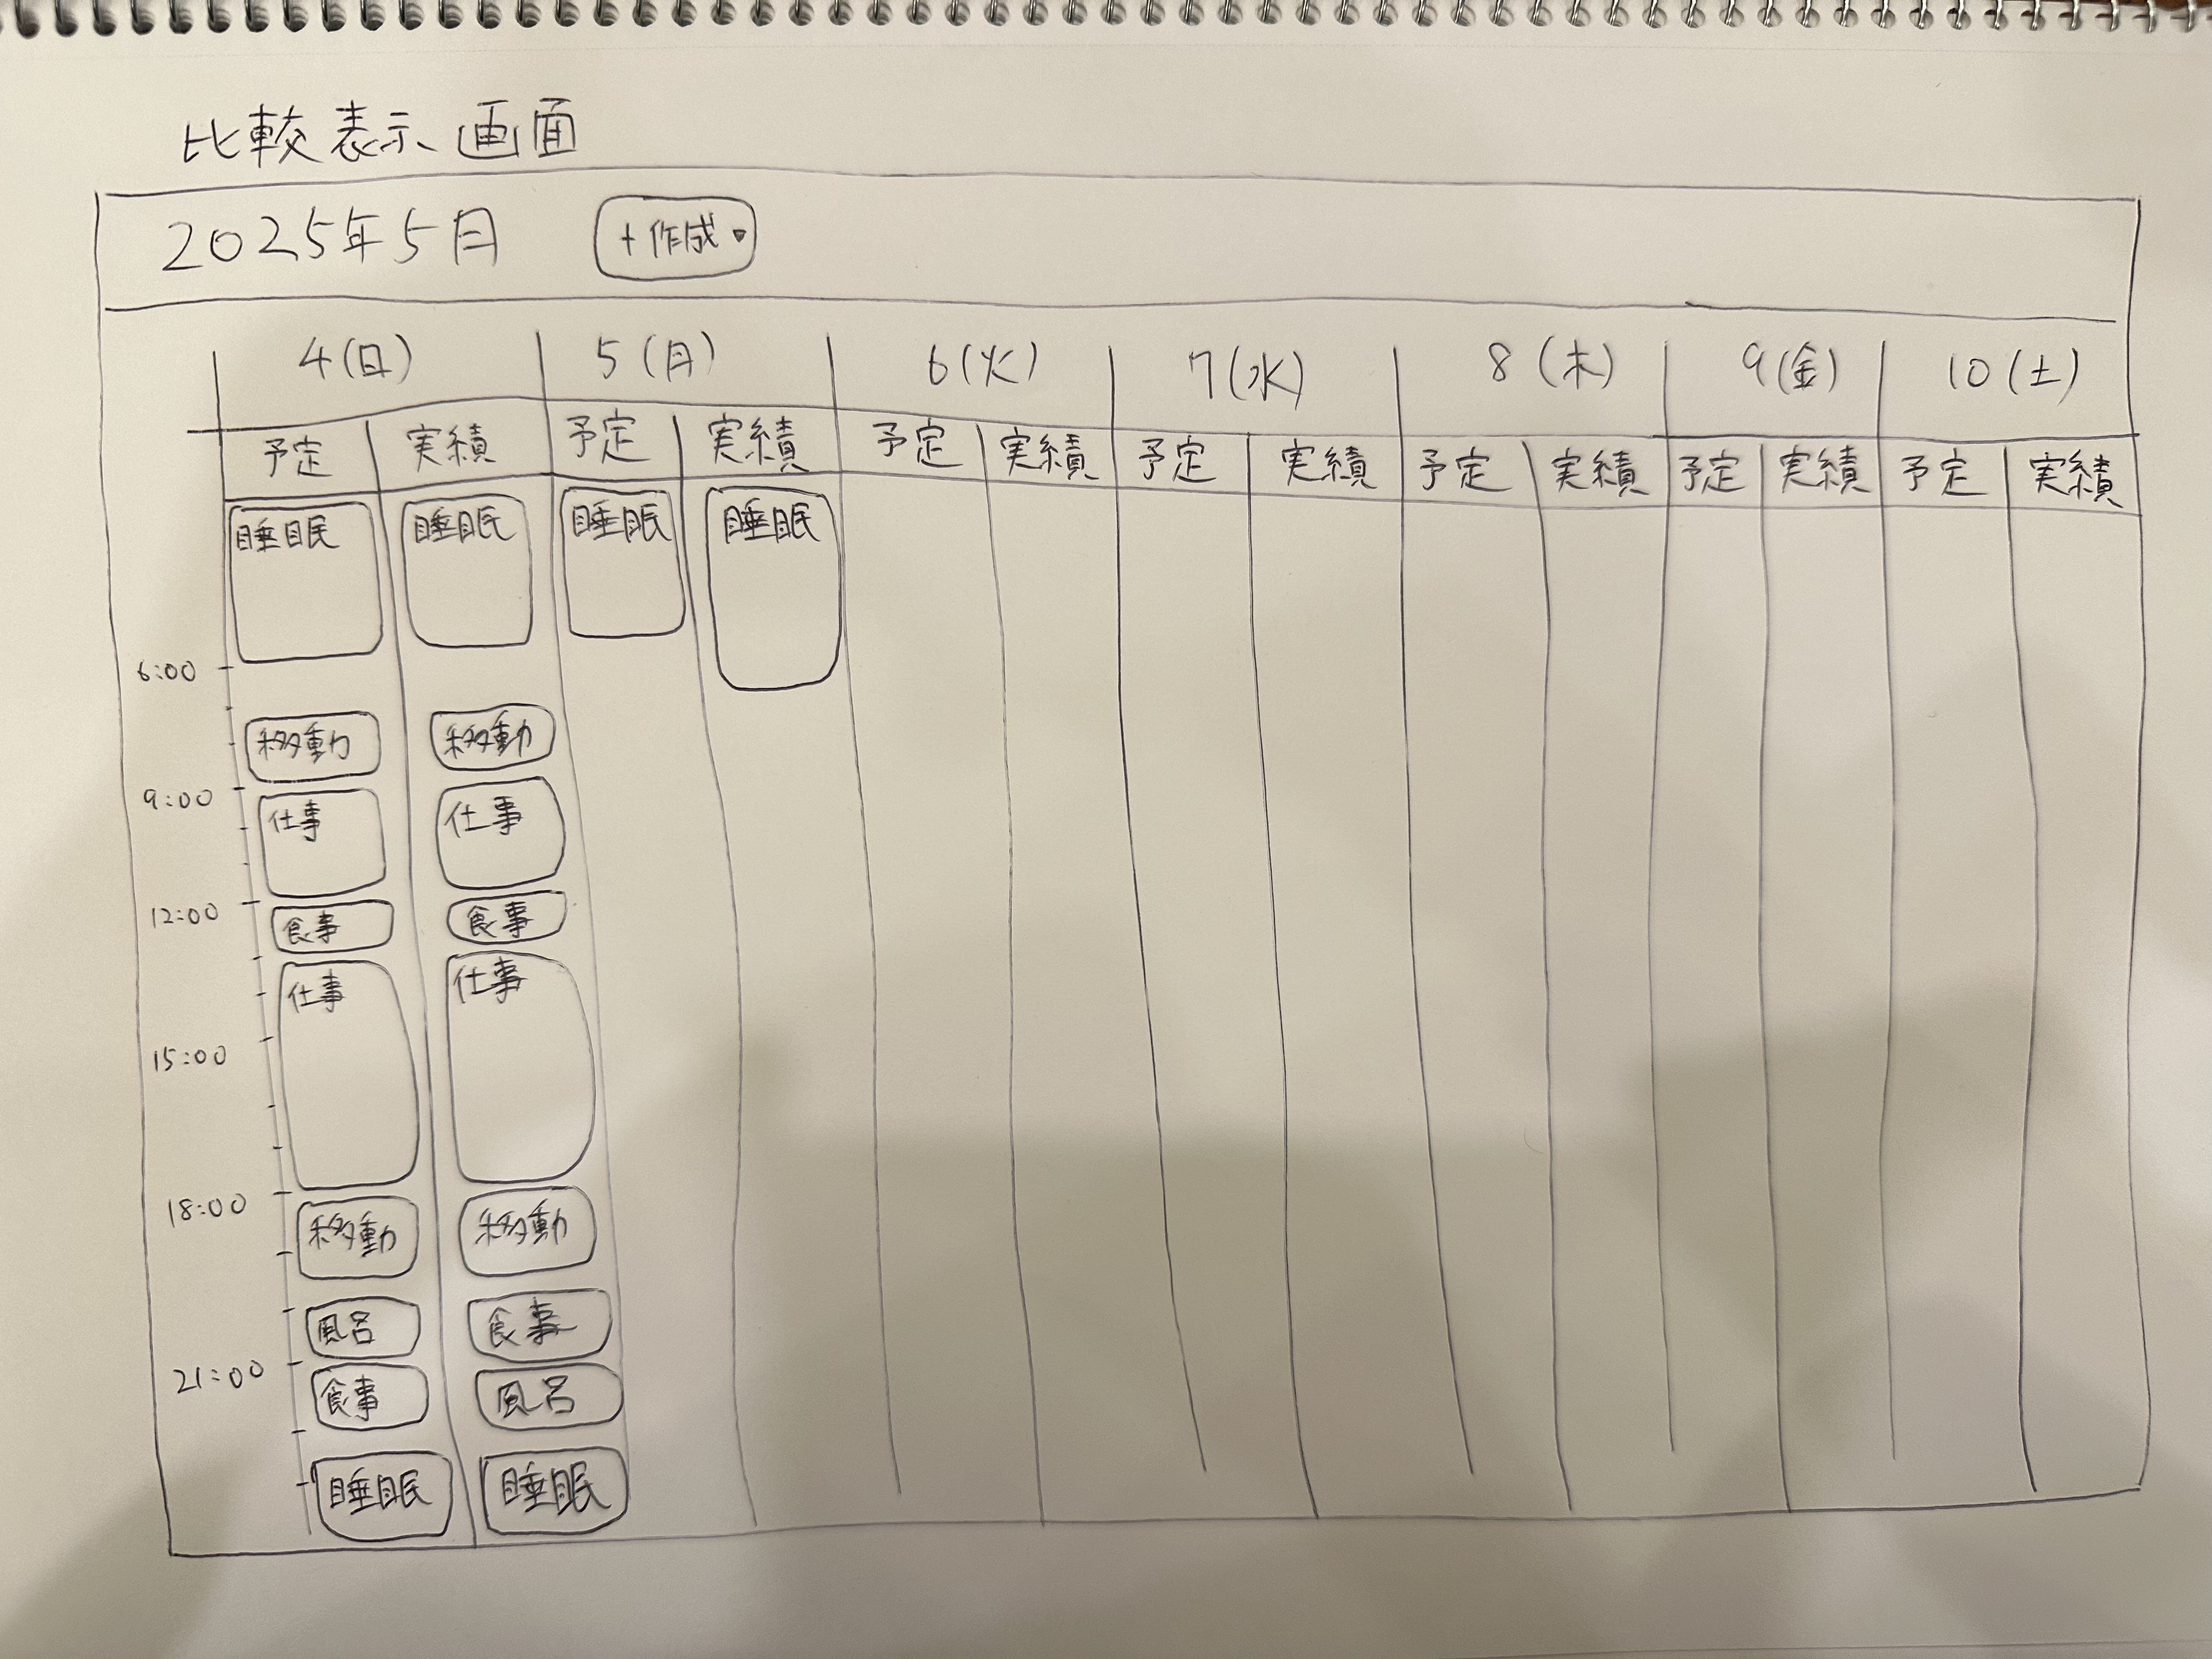 比較表示画面
2025年5月 +作成
4(日) 5(月) 6(火) 7(水) 8(木) 9(金) 10(土)
予定 実績 予定 実績 予定 実績 予定 実績 予定 実績 予定 実績 予定 実績
睡眠 睡眠 睡眠 睡眠
6:00
移動 移動
9:00
仕事 仕事
12:00
食事 食事
仕事 仕事
15:00
18:00
移動 移動
風呂 食事
21:00
食事 風呂
睡眠 睡眠